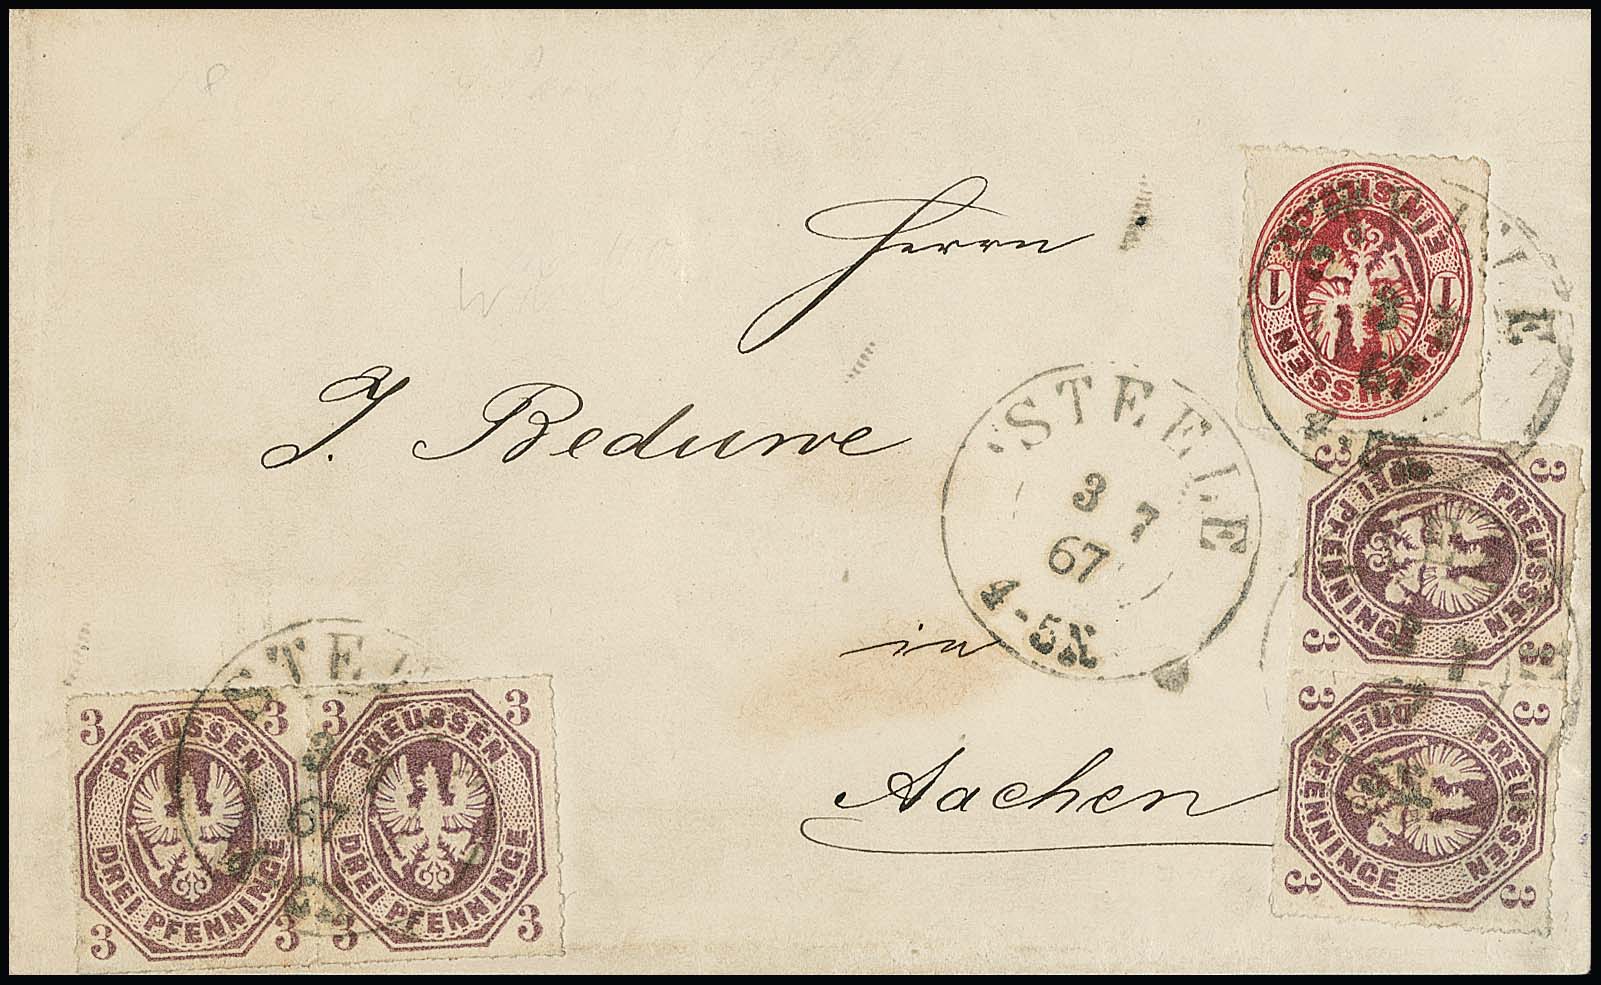 Herrn
J. Beduwe
in
Aachen
STEELE
3 7
67
4-5N
1 EIN SILB.GR. 1
PREUSSEN
3 3
PREUSSEN
DREI PFENNINGE
3 3
3 3
PREUSSEN
DREI PFENNINGE
3 3
STEE
3
67
3 3
PREUSSEN
DREI PFENNINGE
3 3
3 3
PREUSSEN
DREI PFENNINGE
3 3